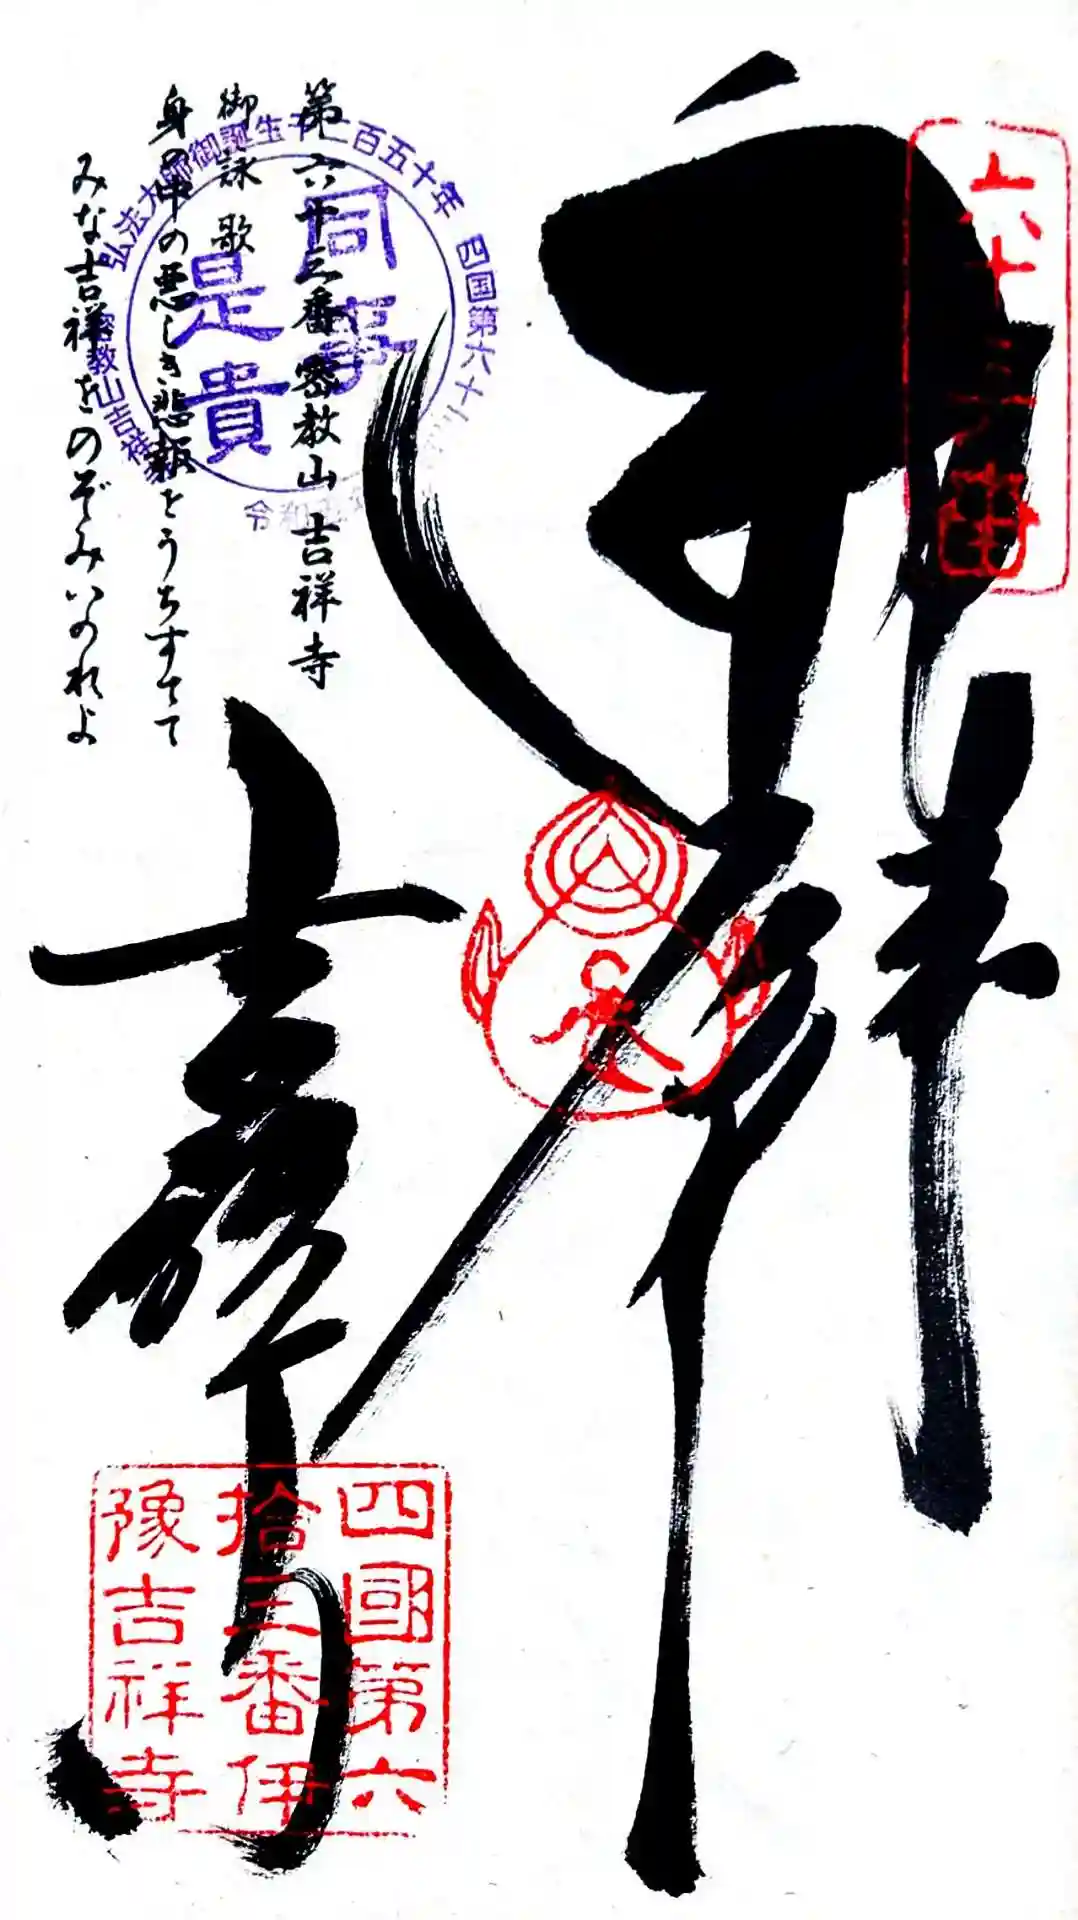 六十三番
奉
拝
第六十三番 密教山 吉祥寺
御詠歌
身の中の悪しき悲報をうちすてて
みな吉祥をのぞみいのれよ
弘法大師御誕生千二百五十年 四国第六十三
密教山吉祥
令和五年
同事
是貴
吉祥寺
四國第六
拾三番伊
豫吉祥寺